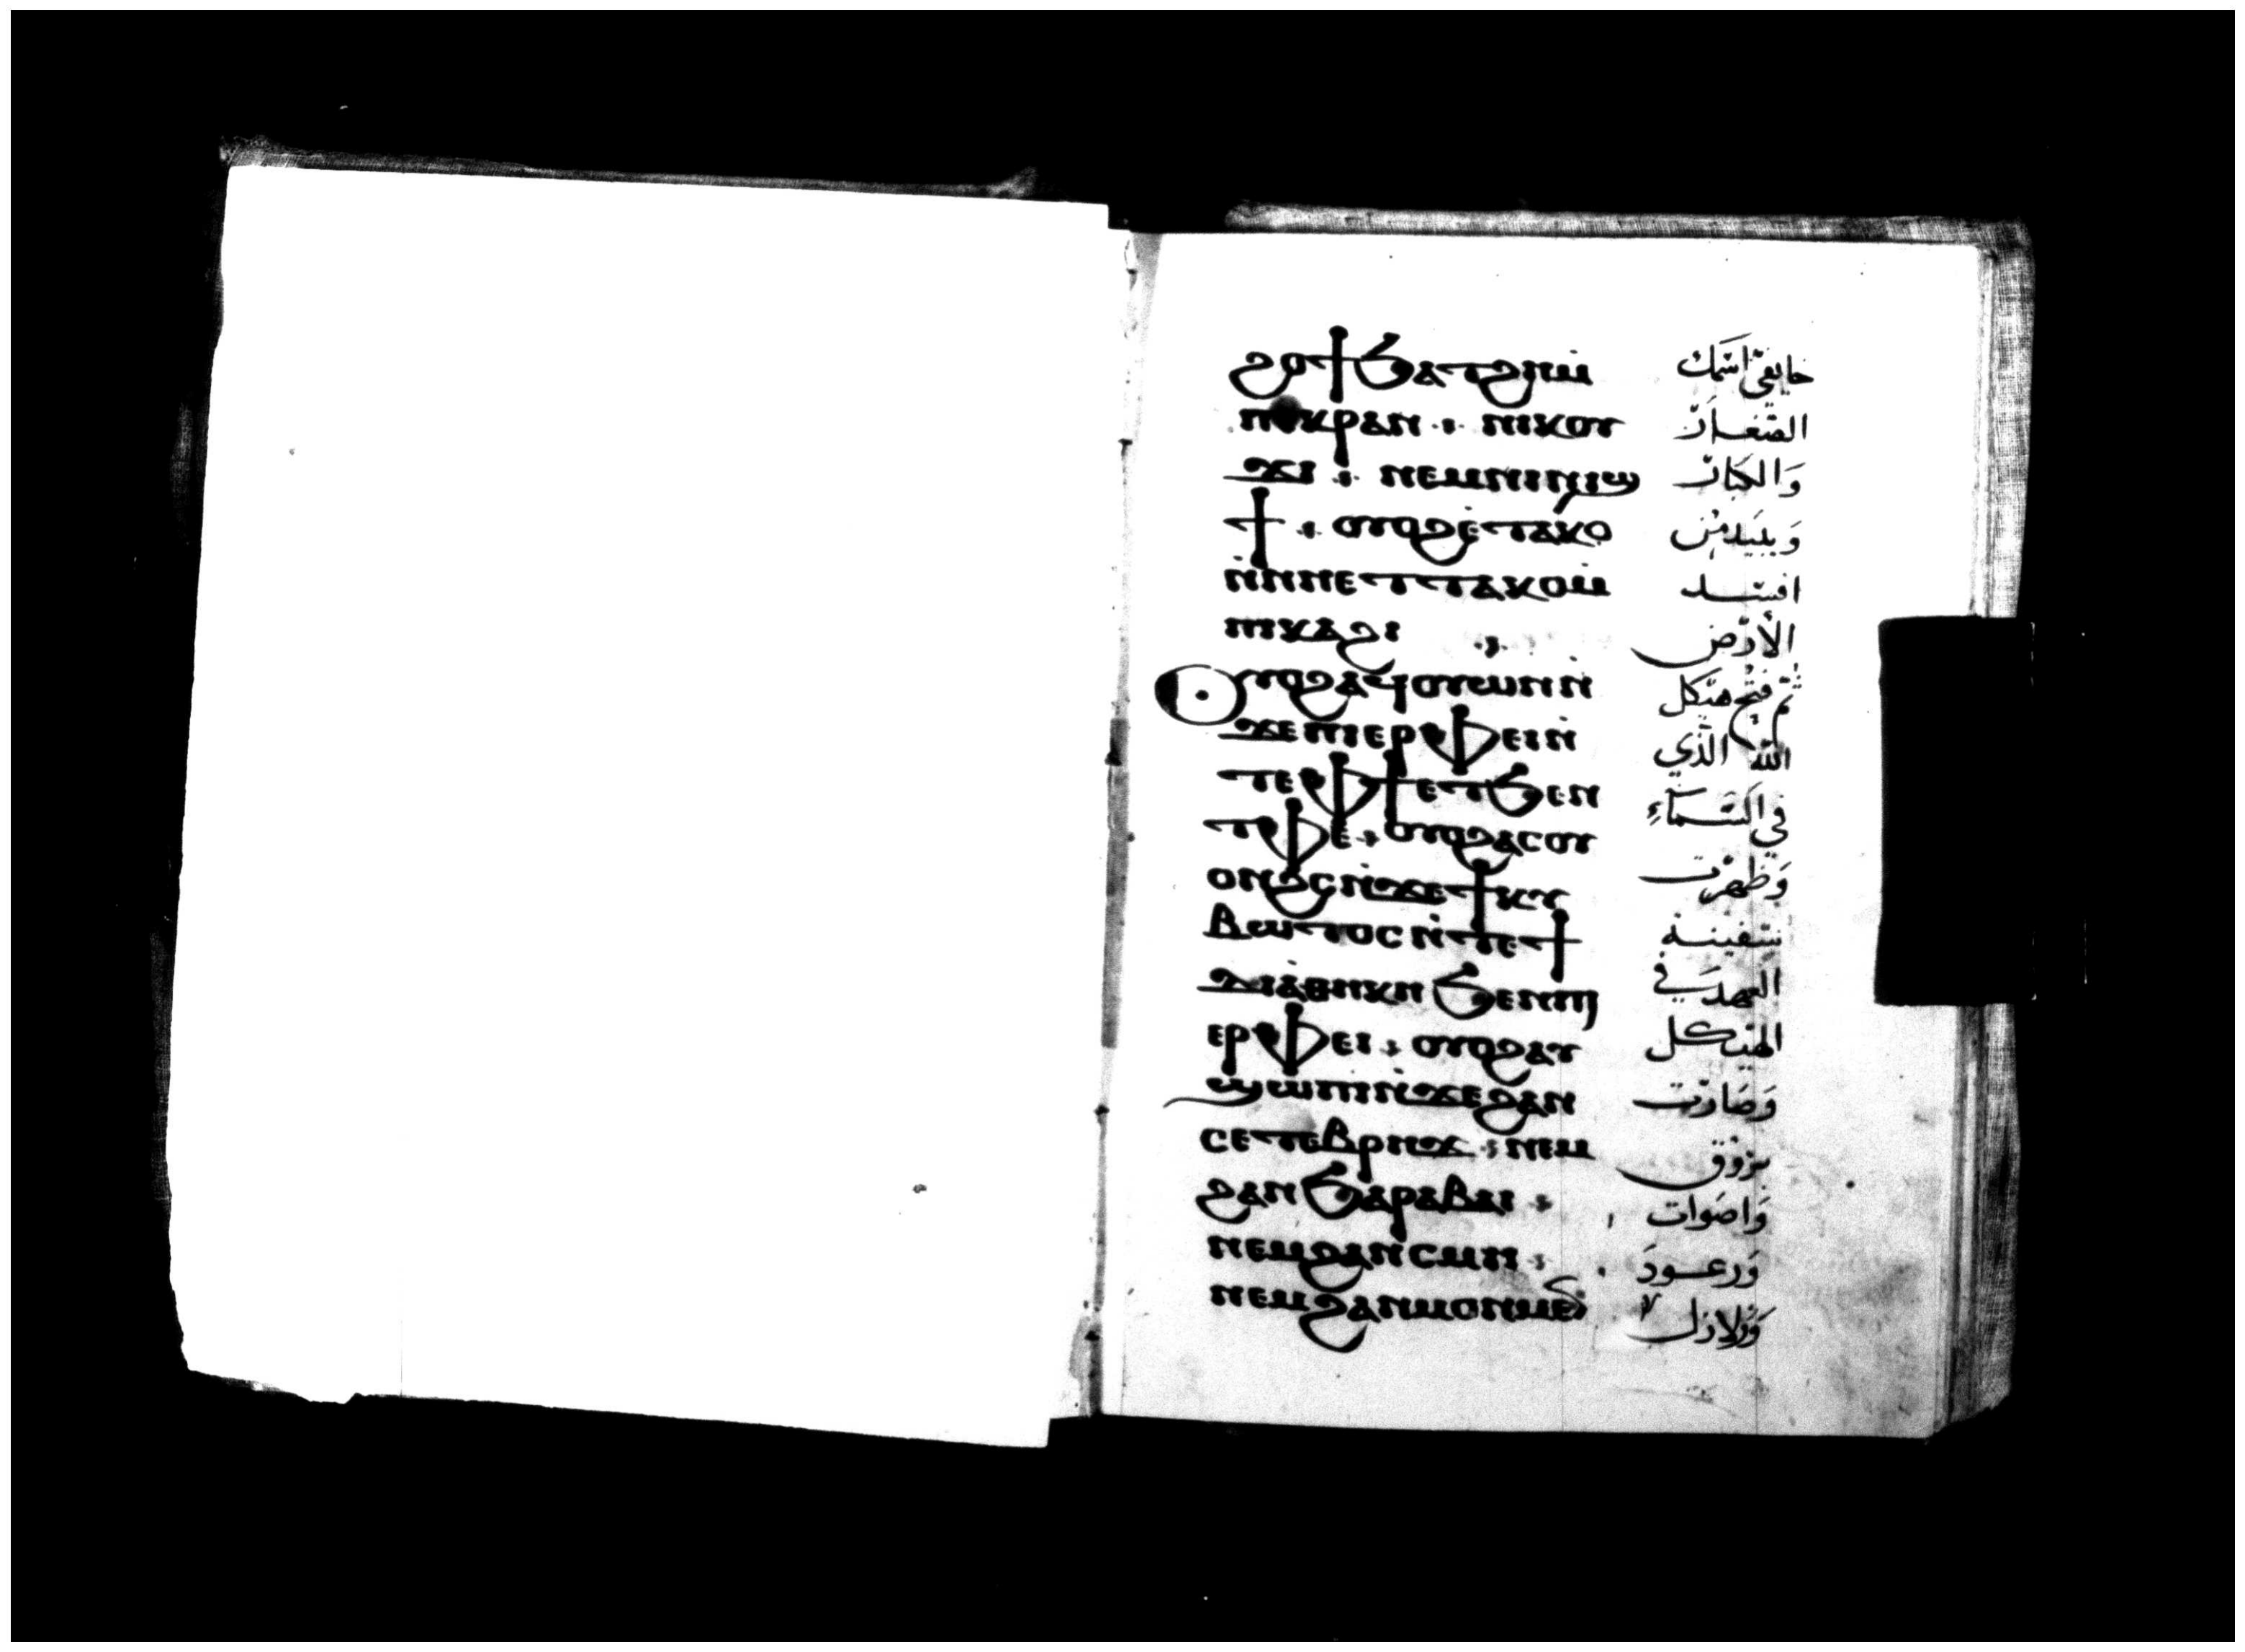 ϩⲟϯϧⲁⲧϩⲏⲙ̀
ⲡⲉⲕⲣⲁⲛ ⲛⲓⲕⲟⲩ
ϫⲓ ⲛⲉⲙⲛⲓⲛⲓϣ
ϯ ⲟⲩⲟϩⲉ̀ⲧⲁⲕⲟ
ⲛ̀ⲛⲏⲉⲧⲧⲁⲕⲟⲙ̀
ⲡⲓⲕⲁϩⲓ
Ⲟⲩⲟϩⲁϥⲟⲩⲱⲛⲛ̀
ϫⲉⲡⲓⲉⲣⲫⲉⲓⲛ̀
ⲧⲉⲫϯⲉⲧϧⲉⲛ
ⲧⲫⲉ ⲟⲩⲟϩⲁⲥⲟⲩ
ⲟⲛϩⲥⲛ̀ϫⲉϯⲕⲩ
ⲃⲱⲧⲟⲥⲛ̀ⲧⲉϯ
ⲇⲓⲁ̀ⲑⲏⲕⲏϧⲉⲛⲡⲓ
ⲉⲣⲫⲉⲓ ⲟⲩⲟϩⲁⲩ
ϣⲱⲡⲓⲛ̀ϫⲉϩⲁⲛ
ⲥⲉⲧⲉⲃⲣⲏϫ ⲛⲉⲙ
ϩⲁⲛϧⲁⲣⲁⲃⲁⲓ
ⲛⲉⲙϩⲁⲛⲥⲙⲏ
ⲛⲉⲙϩⲁⲛⲙⲟⲛⲙⲉⲛ
خايفي اسمك
الصغار
وَالكبار
وَيبيد من
افسد
الأرض
ثم فتح هيكل
الله الذي
في السَّمَآءِ
وَظهرت
سفينة
العهد في
الهيكل
وَصَارت
بروق
وَاصوات
وَرعود
وَزلازل